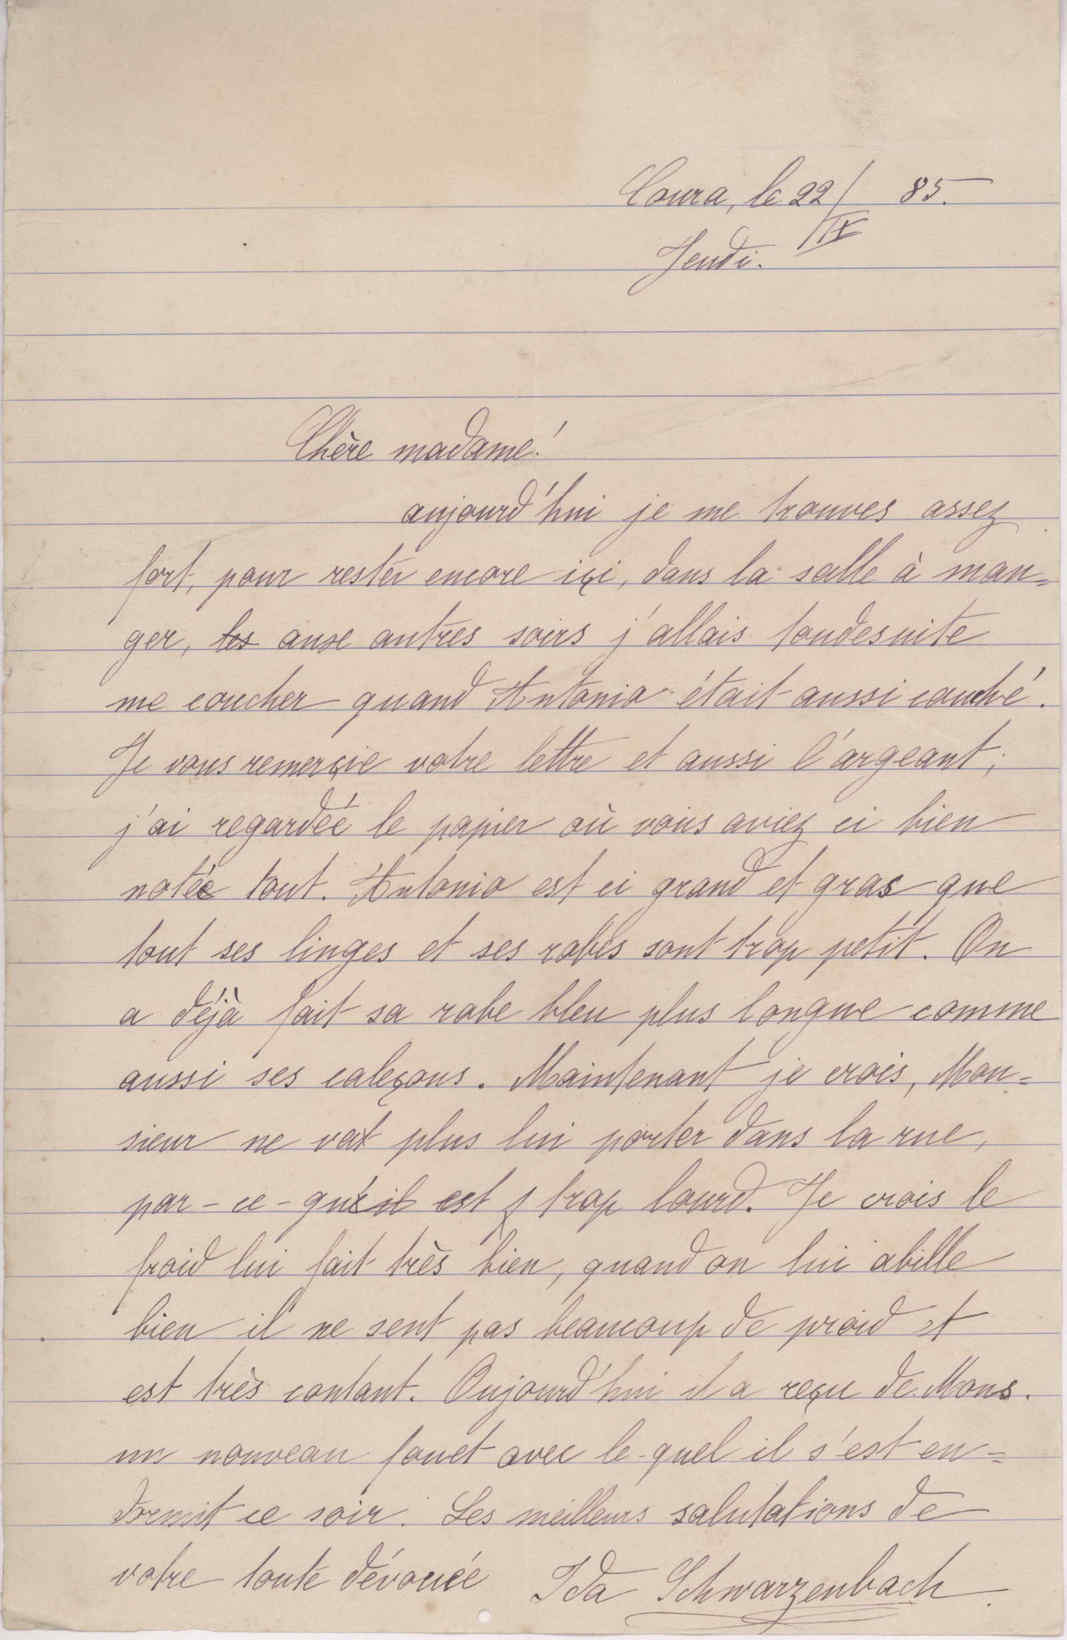 Coura, le 22/IX 85.
Jeudi.
Chère madame!
aujourd'hui je me trouves assez
fort, pour rester encore içi, dans la salle à man=
ger, les auxe autres soirs j'allais toudesuite
me coucher quand Antonio était aussi couché.
Je vous remerçie votre lettre et aussi l'argeant;
j'ai regardéé le papier où vous aviez ci bien
notée tout. Antonio est ci grand et gras que
tout ses linges et ses robes sont trop petit. On
a déjà fait sa robe bleu plus longue comme
aussi ses caleçons. Maintenant je crois, Mon=
sieur ne vat plus lui porter dans la rue,
par-ce-qu'il est trop lourd. Je crois le
froid lui fait très bien, quand on lui abille
bien il ne sent pas beaucoup de proid et
est très contant. Oujourd'hui il a reçu de Mons.
un nouveau fouet avec le-quel il s'est en=
dormit ce soir. Les meilleurs salutations de
votre toute dévouée Ida Schwarzenbach.